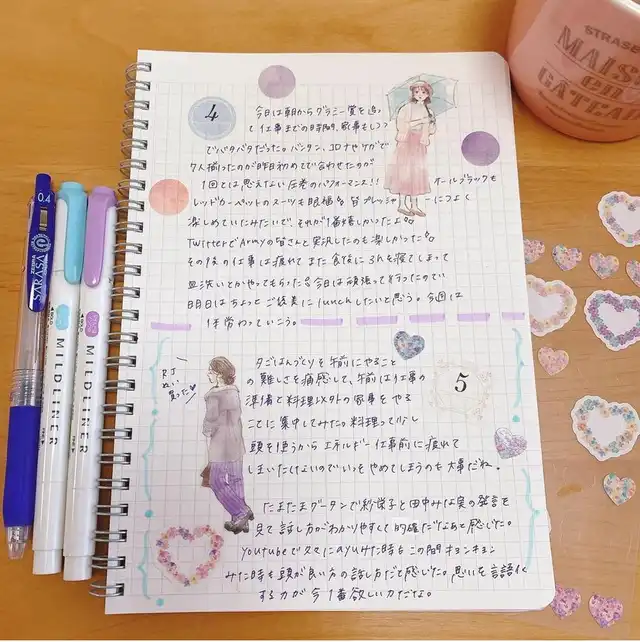 STRASB
MAIS
en
GÂTEAU
4
今日は朝からグラミー賞を追っ
て仕事までの時間、家事もしつつ
でバタバタだった。バンタン、コロナやケガで
7人揃ったのが昨日初めてで合わせたのが
1回とは思えない圧巻のパフォーマンス!! オールブラックも
レッドカーペットのスーツも眼福 皆プレッシャーにつよく
楽しめていたみたいで、それが1番嬉しかったよ。
TwitterでArmyの皆さんと実況したのも楽しかった
その後の仕事は疲れてまた食後に3hも寝てしまって
皿洗いとかやってもらった 今日は頑張って行ったので
明日はちょっとご褒美にlunchしたいと思う。今週は
1年労わっていこう。
RJ
ぬい
買った
夕ごはんづくりを午前にやること
の難しさを痛感して、午前は仕事の
準備と料理以外の家事をやる
ことに集中してみた。料理って少し
頭を使うからエネルギー仕事前に疲れて
しまいたくないのでいっそやめてしまうのも大事だね。
5
たまたまグータンで紗栄子と田中みな実の発言を
見て話し方がわかりやすくて的確だなあと感じた。
youtubeで久々にayuみた時もこの間キョンキョン
みた時も頭が良い方の話し方だと感じた。思いを言語化
する力が今1番欲しい力だな。
0.4
SARASA
ZEBRA
MILDLINER
ZEBRA
MILDLINER